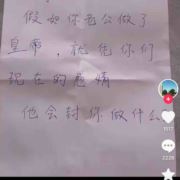 假如你老公做了
皇帝，就凭你们
现在的感情
他会封你做什么
1517
2228